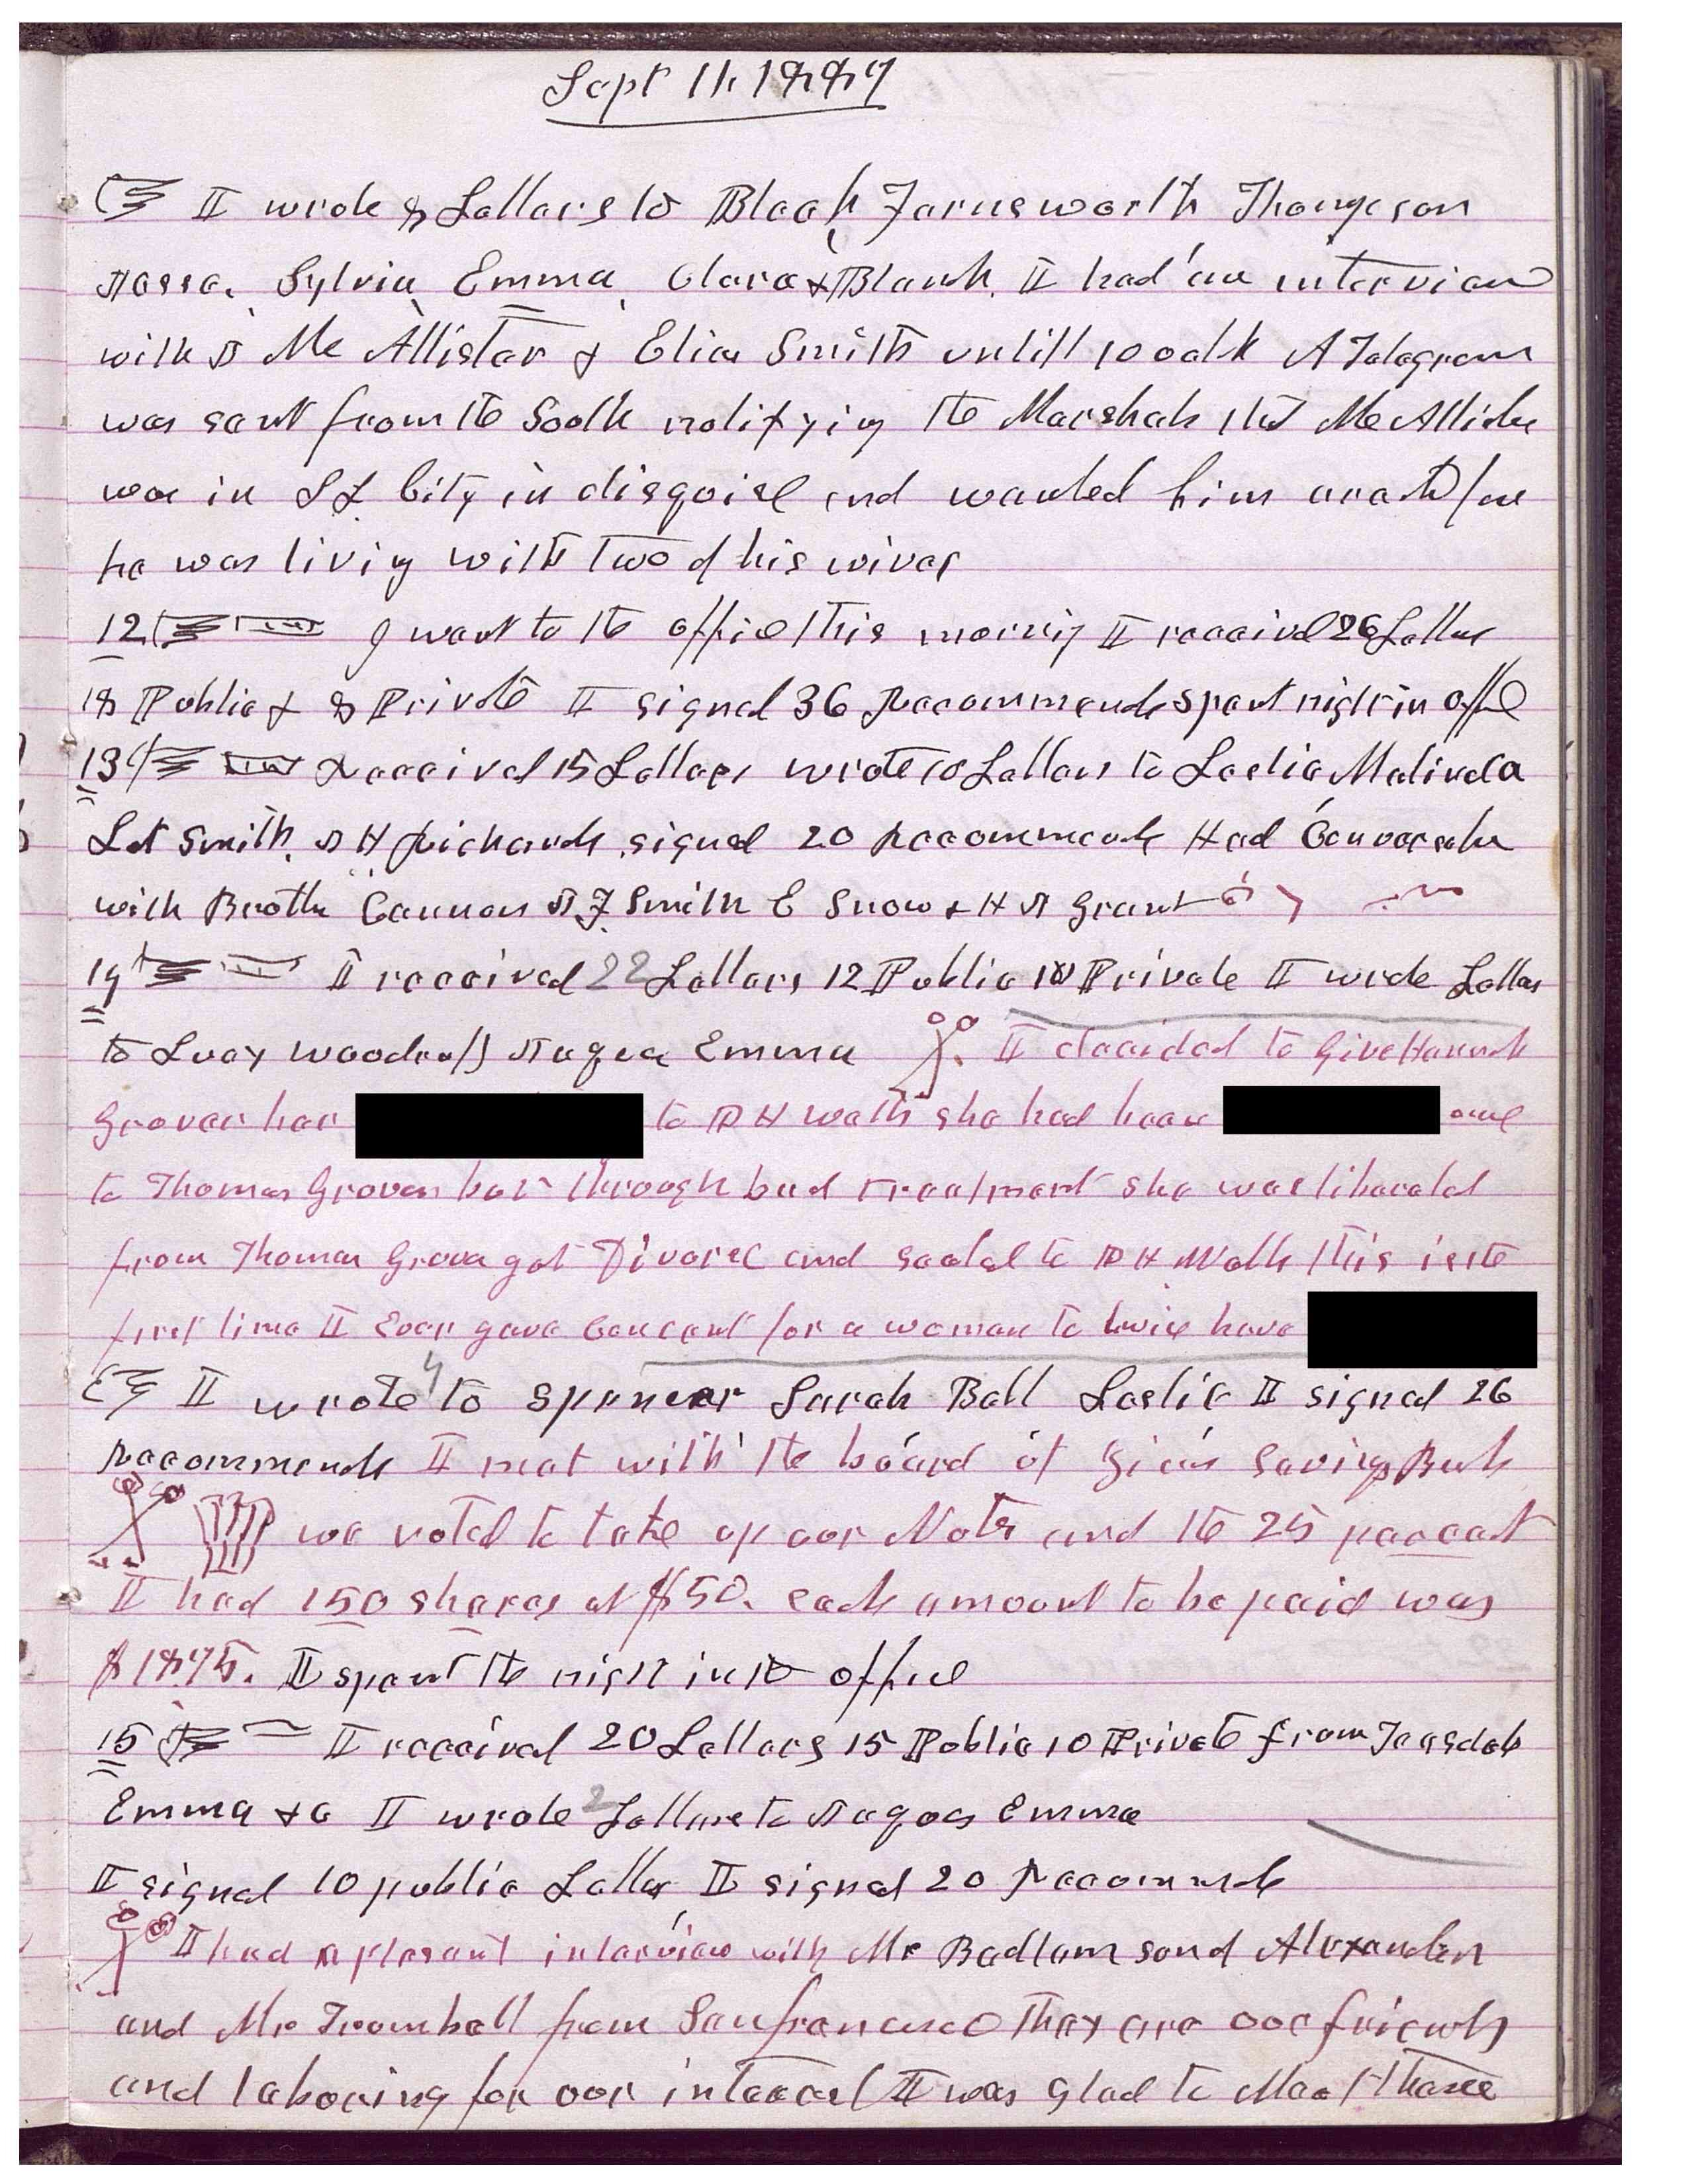 Sept 11, 1889
I wrote 8 Letters to Black, Farnsworth Thompson
Sylvia Emma Clara & Blanch. I had an interview
with Mc Allister & Elias Smith untill 10 oclk A Telegram
was sent from the South notifying the Marshals that McAllister
was in SL City in disguise and wanted him as
he was living with two of his wives
12 I went to the office this morning I received 26 Letters
18 Public & 8 Private I signed 36 Recommends spent night in office
13 Received 15 Letters wrote Letters to Leslie Malinda
Lot Smith. H Richards signed 20 Recommends Had Convorsation
with Brother Cannon J F Smith E Snow & H J Grant
14 I received 22 Letters 12 Public 10 Private I wrote Letters
to Lucy Woodruff Naomi Emma I decided to Give Hannah
Grover her to D H Wells she had been
to Thomas Grover but through bad treatment she was liberated
from Thomas Grover got Divorce and sealed to D H Wells This is the
first time I Ever gave Concent for a woman to twice have
I wrote 4 to Spencer Sarah Ball Leslie I signed 26
Recommends I met with the board of Zions Savings Bank
we voted to take up our Note and the 25 percent
I had 150 shares at $50. each amount to be paid was
$1875. I spent the night in the office
15 I received 20 Letters 15 Public 10 Private from Teasdale
Emma &c I wrote 2 Letters to Emma
I signed 10 public Letters I signed 20 Recommends
I had a plesant interview with Mr Badlam sond Alexander
and Mr Trombell from Sanfrancisco They are our friends
and laboring for our interest I was glad to Meet these